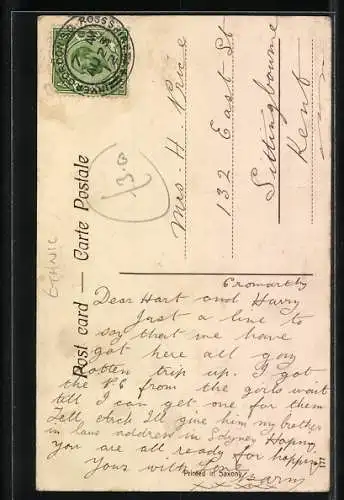 INVERGORDON S.O. ROSS-SHIRE
Post card — Carte Postale
ETHNIC
Mrs. H. Price
132 East St
Sittingbourne
Kent
Cromarthy
Dear Hart and Harry
Just a line to
say that we have
got here all gay
rotten trip up. I got
the P.C from the girls wait
till I can get one for them
Tell Ill give him my brother
in laws address in Sydney
you are all ready for hopping
yours with
Printed in Saxony
177